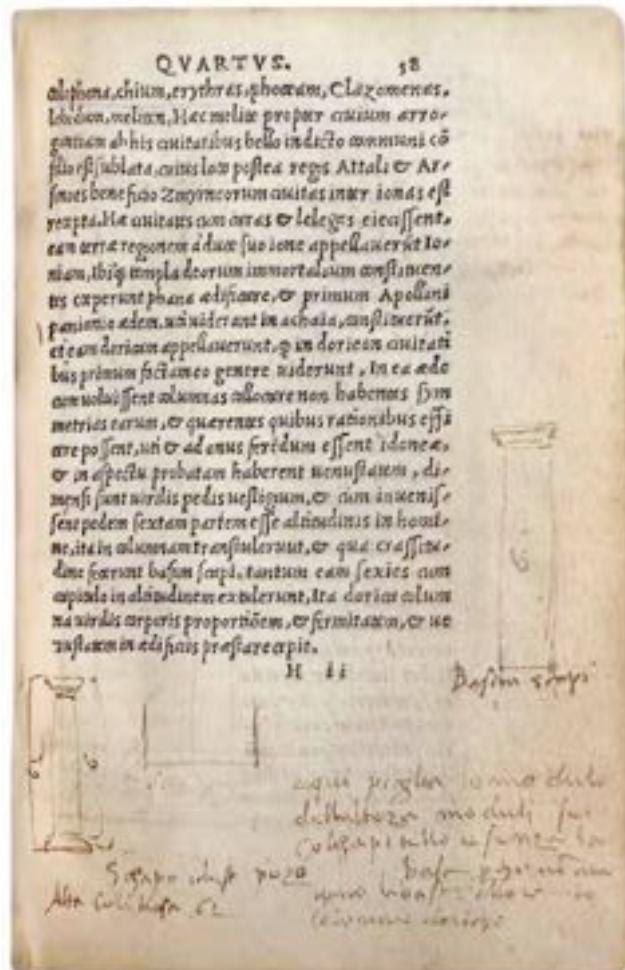 QVARTVS. 58
colophona, chium, erythras, phoceam, Clazomenas,
lebedum, meliten, Hæc melite propter ciuium arro-
gantiam ab his ciuitatibus bello indicto communi cō
silio est sublata, cuius loco postea regis Attali & Ar-
sinoes beneficio Zmyrneorum ciuitas inter ionas est
recepta. Hæ ciuitates cum caras & lelegas eiecissent,
eam terræ regionem à duce suo ione appellauerūt Io-
niam, Ibiq; templa deorum immortalium constituen-
tes cæperunt phana ædificare, & primum Apollini
panionio ædem, uti uiderant in achaia, constituerūt,
et eam doricen appellauerunt, in doricon ciuitati
bus primum factam eo genere uiderunt, In ea æde
cum uoluissent columnas collocare non habentes sym
metrias earum, & quærentes quibus rationibus effi
cere possent, uti & ad onus ferēdum essent idoneæ,
& in aspectu probatam haberent uenustatem, di-
mensi sunt uirilis pedis uestigium, & cum inuenis-
sent pedem sextam partem esse altitudinis in homi-
ne, ita in columnam transtulerunt, & qua crassitu-
dine fecerunt basim scapi, tantum eam sexies cum
capitulo in altitudinem extulerunt, Ita dorica colum
na uirilis corporis proportiōem, & firmitatem, & ue
nustatem in ædificiis præstare cæpit.
H ii
6
Basim scapi
6
6
aqui piglia lo modulo
moduli
senza la
base
Alta